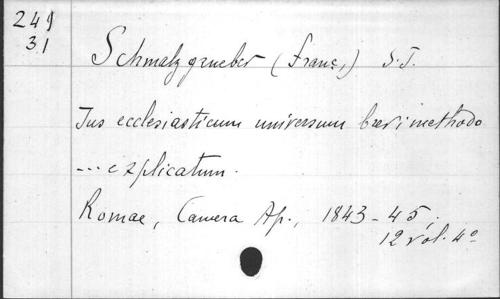 249
31
Schmalzgrueber (Franc,) S.J.
Jus ecclesiasticum universum brevi methodo
... explicatum.
Romae, Camera Ap., 1843-45,
12 vol. 4º